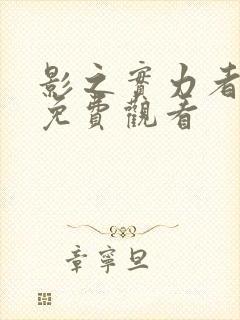 影之實力者
免費觀看
章寧旦